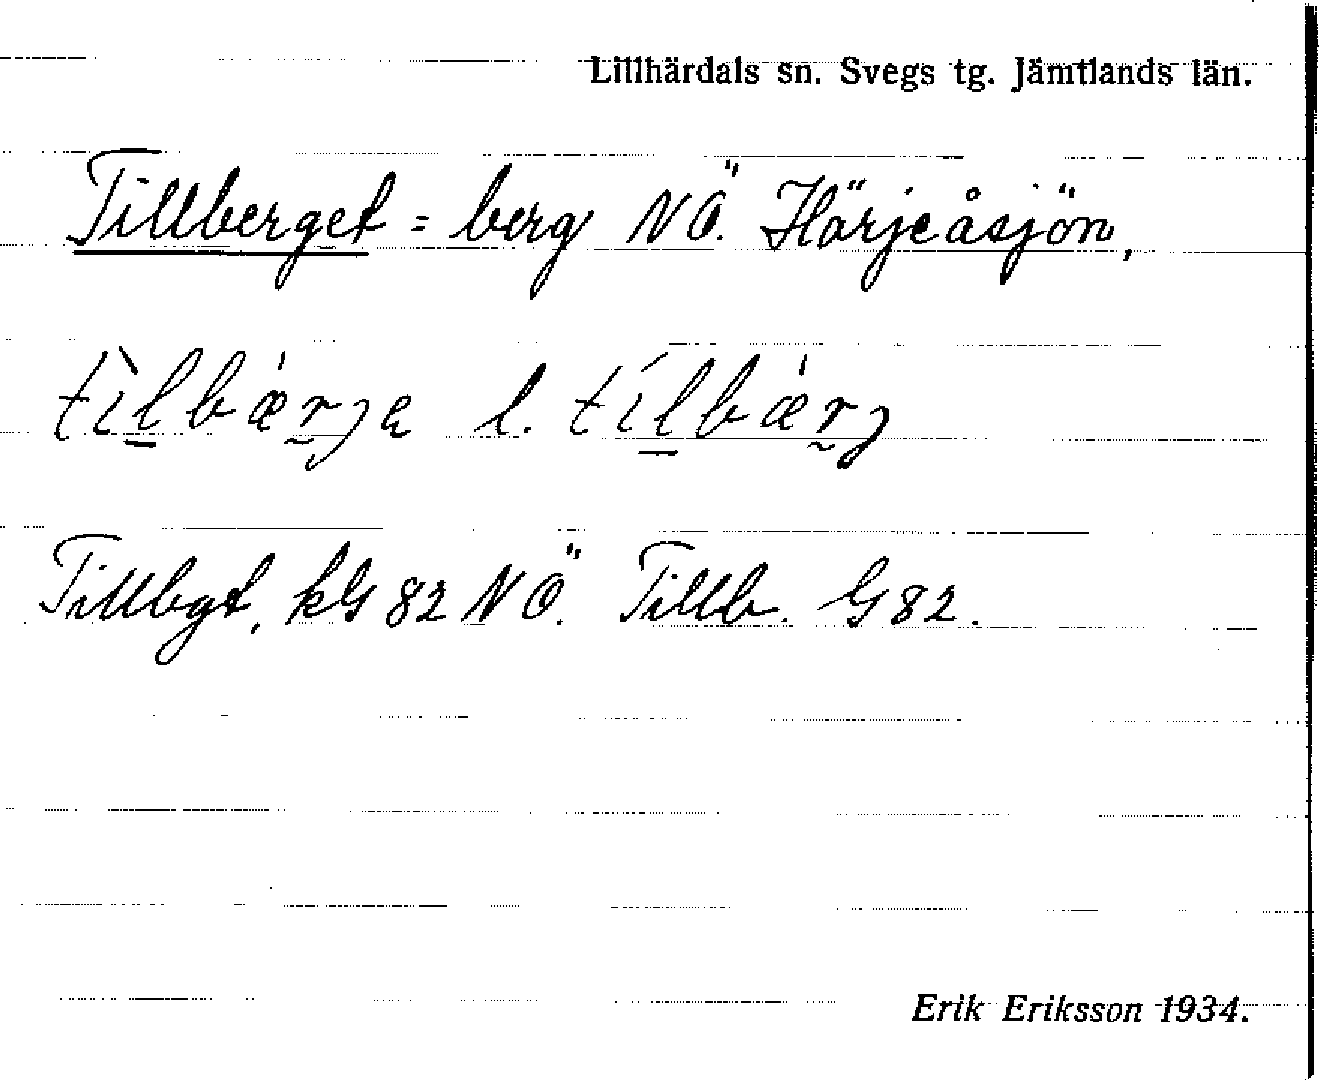 Lillhärdals sn. Svegs tg. Jämtlands län.
Tillberget = berg NÖ. Härjeåsjön,
tìḻbæ̀r̰ja l. tíḻbæ̀r̰j
Tillbgt, kG 82 NÖ. Tillb. G 82.
Erik Eriksson 1934.